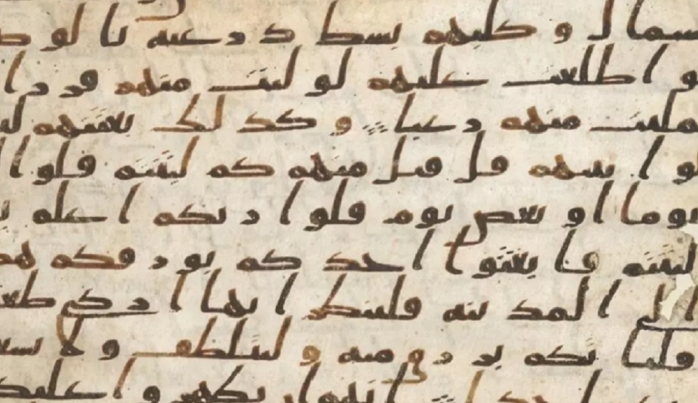 سمال و كلبهم بسط ذرعيه بالوصـ
لو اطلعت عليهم لوليت منهم فررا
ملئت منهم رعبا و كذلك بعثنهم ليـ
لوا بينهم قل قيل منهم كم لبثتم قلوا
يوما او بعض يوم قلوا ربكم اعلم بـ
لبثتم فابعثوا احدكم بورقكم هذ
الى المدينة فلينظر ايها ازكى طعـ
فلياتكم برزق منه و ليتلطف و لا يشعـ
احدا انهم ان يظهروا عليكم